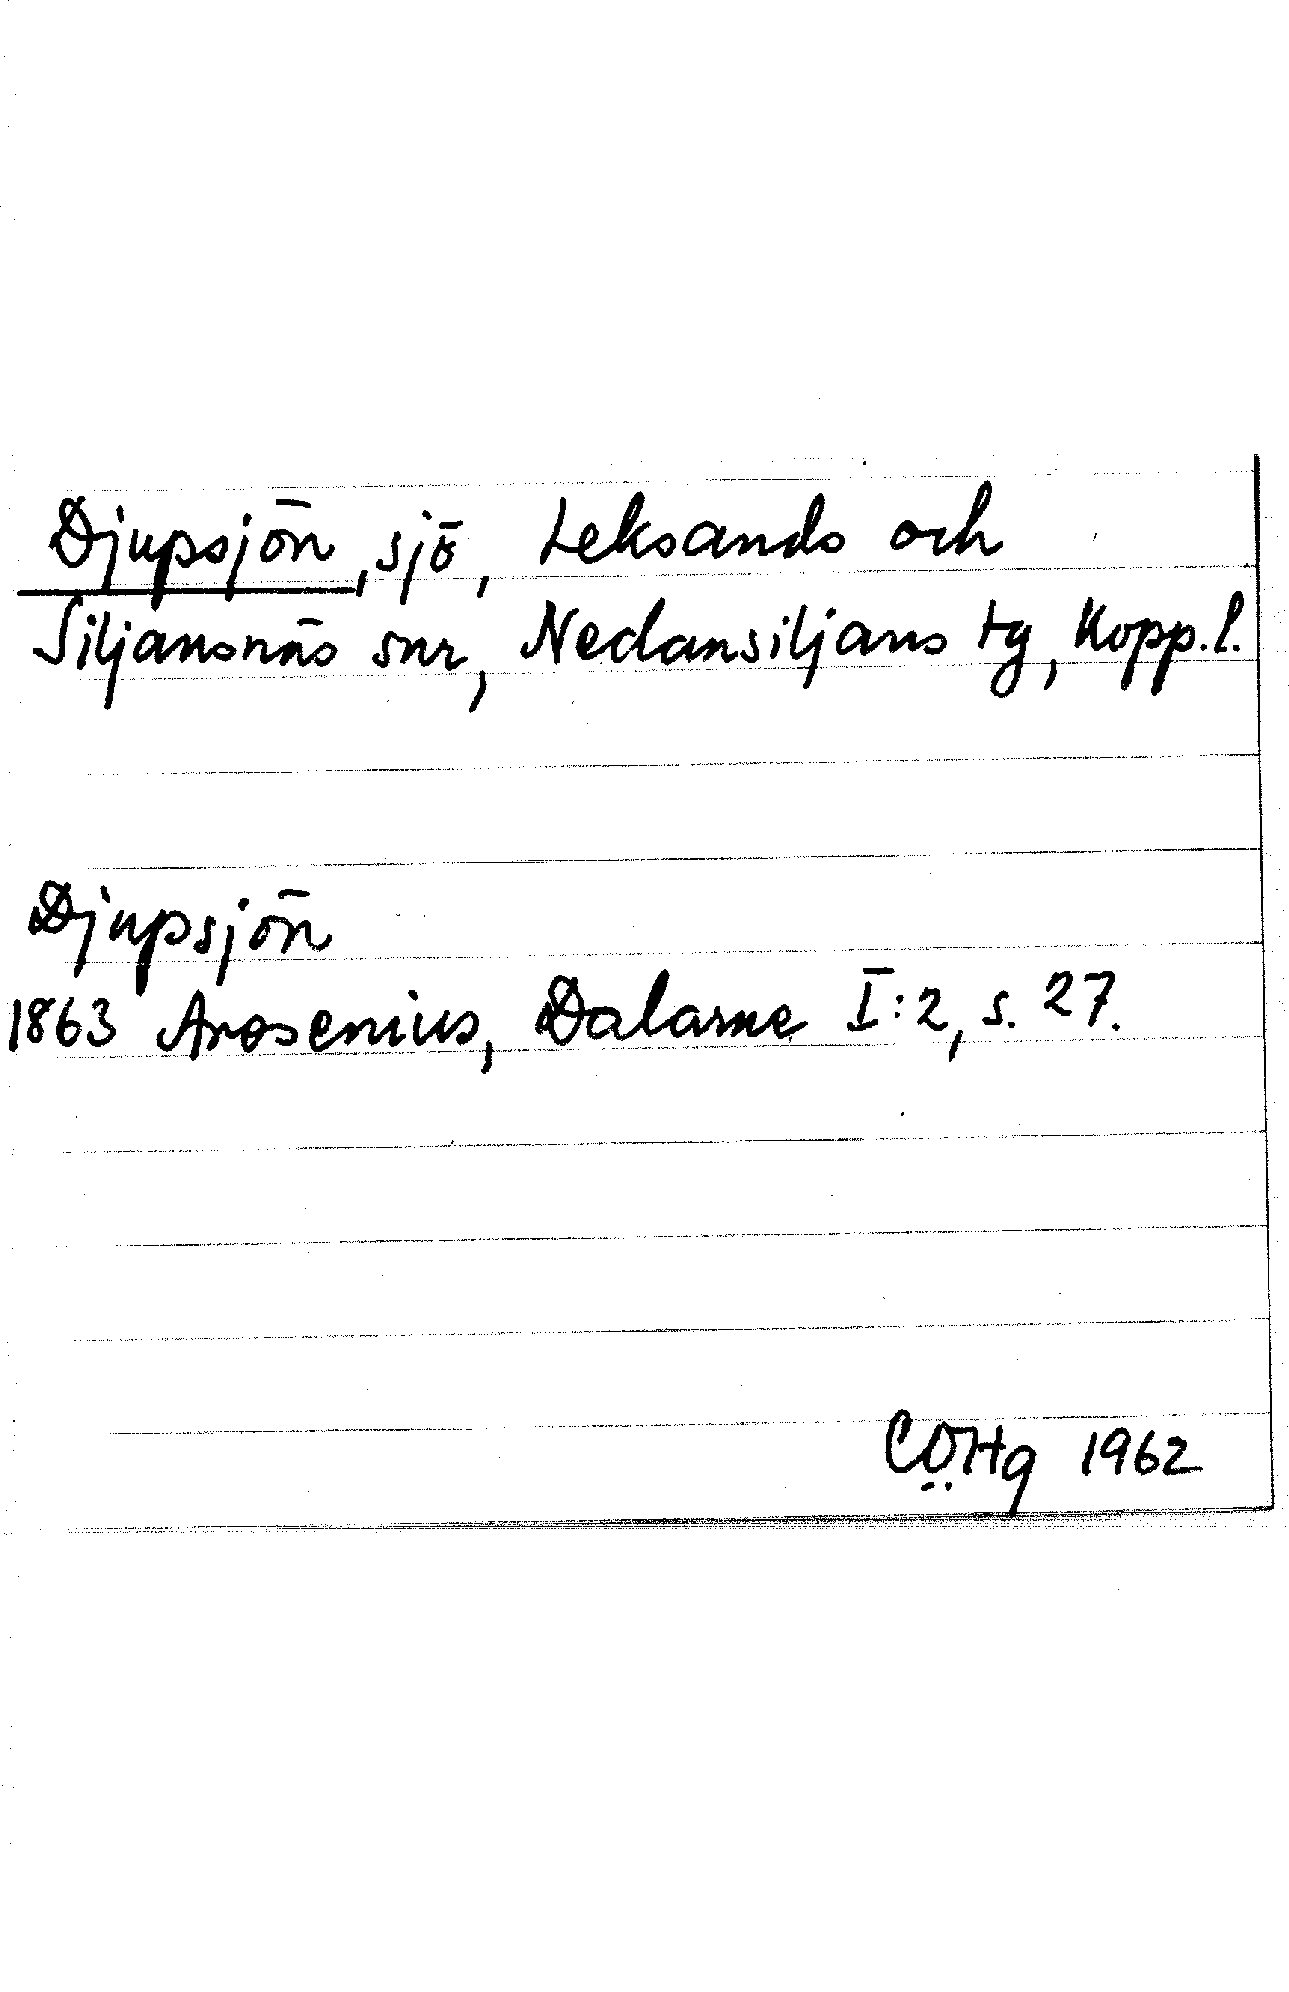 Djupsjön, sjö, Leksands och
Siljansnäs snr, Nedansiljans tg, Kopp. l.
Djupsjön
1863 Arosenius, Dalarne I:2, s. 27.
CÖHg 1962